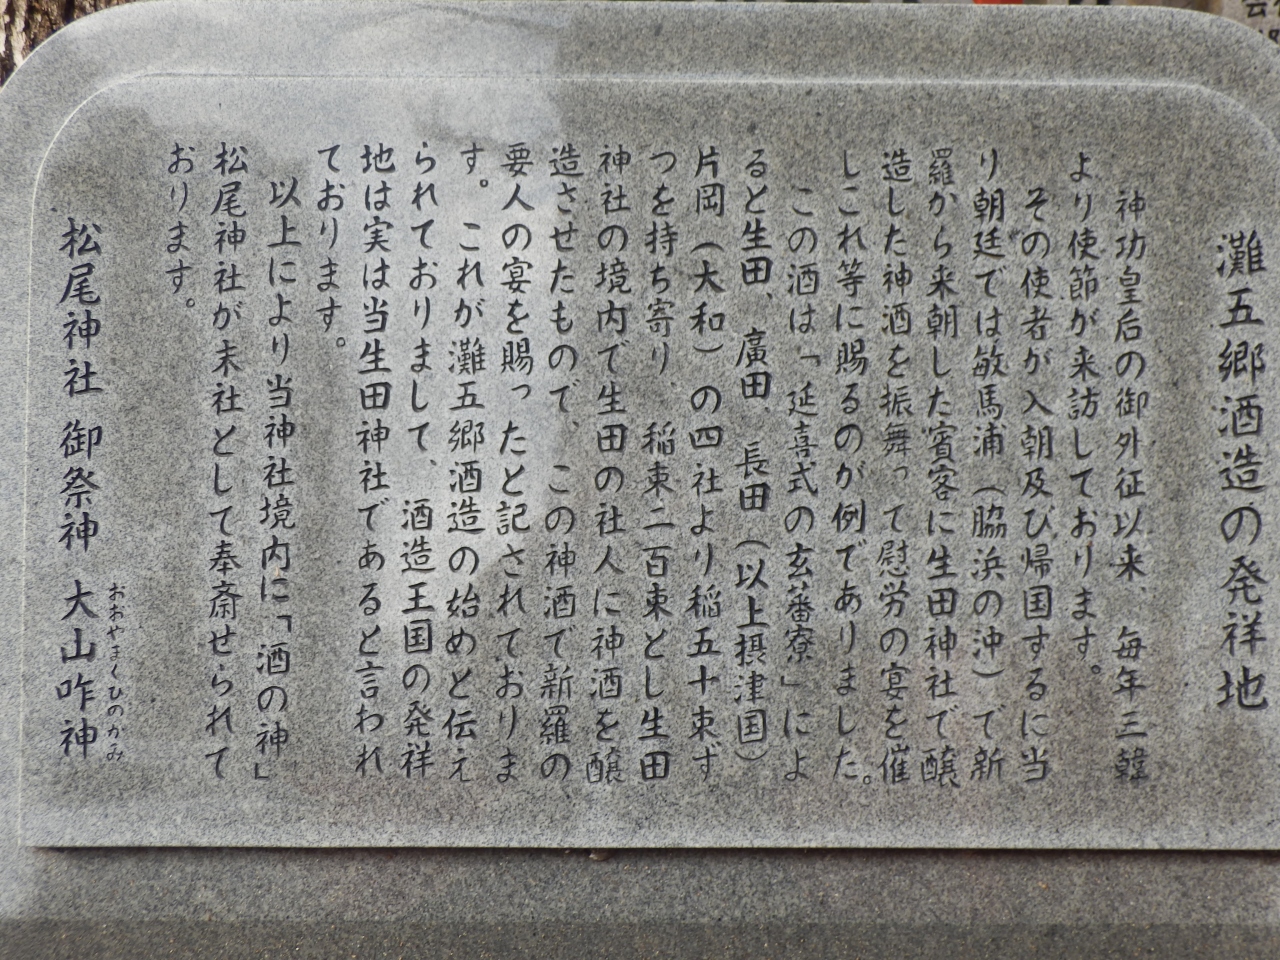 灘五郷酒造の発祥地
神功皇后の御外征以来、毎年三韓
より使節が来訪しております。
その使者が入朝及び帰国するに当
り朝廷では敏馬浦(脇浜の沖)で新
羅から来朝した賓客に生田神社で醸
造した神酒を振舞って慰労の宴を催
しこれ等に賜るのが例でありました。
この酒は「延喜式の玄蕃寮」によ
ると生田、廣田、長田(以上摂津国)
片岡(大和)の四社より稲五十束ず
つを持ち寄り、稲束二百束とし生田
神社の境内で生田の社人に神酒を醸
造させたもので、この神酒で新羅の
要人の宴を賜ったと記されておりま
す。これが灘五郷酒造の始めと伝え
られておりまして、酒造王国の発祥
地は実は当生田神社であると言われ
ております。
以上により当神社境内に「酒の神」
松尾神社が末社として奉斎せられて
おります。
松尾神社 御祭神 大山咋神
おおやまくひのかみ